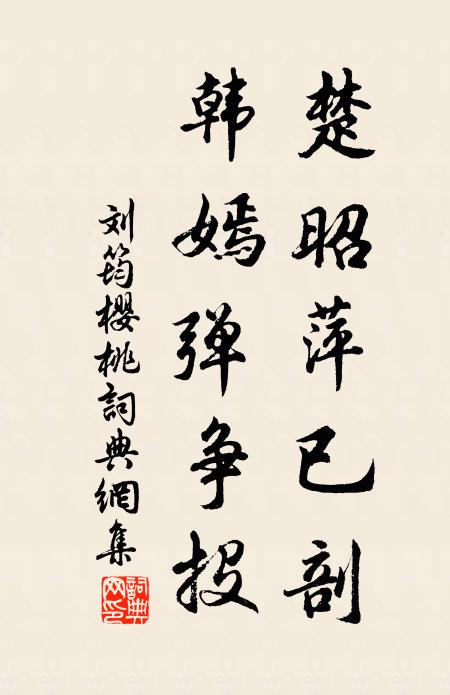 楚昭萍已剖
韩嫣弹争投
刘筠樱桃詞典網集
詞典網印